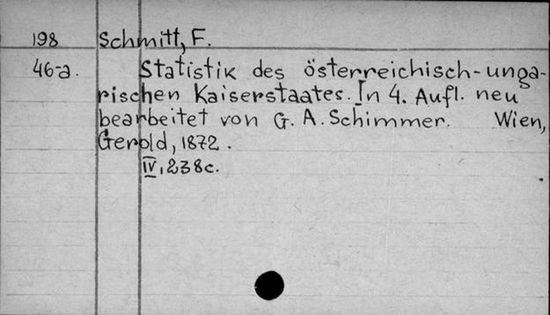 198 Schmitt, F.
46-a. Statistik des österreichisch-unga-
rischen Kaiserstaates. In 4. Aufl. neu
bearbeitet von G. A. Schimmer. Wien,
Gerold, 1872.
IV, 238c.